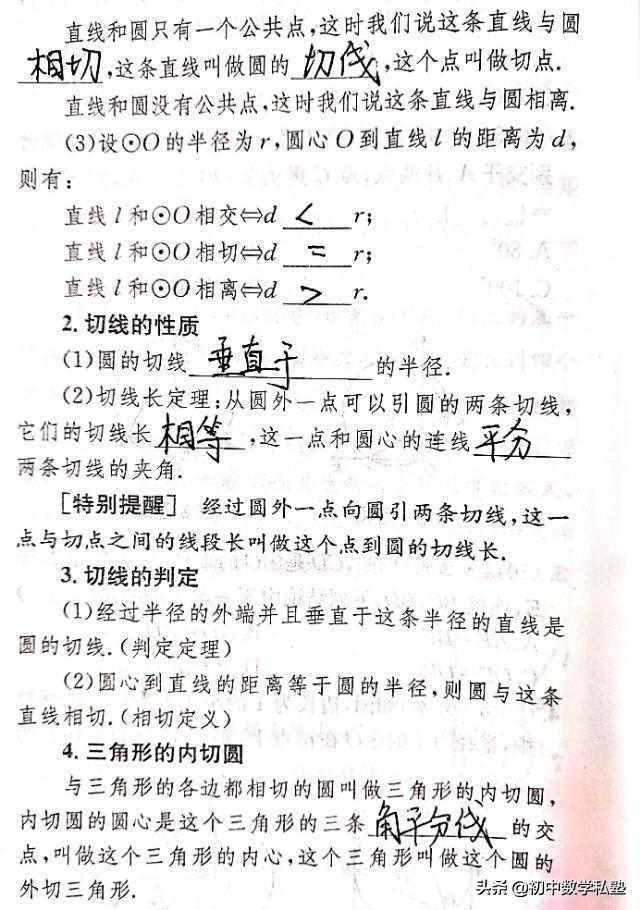 直线和圆只有一个公共点,这时我们说这条直线与圆
相切,这条直线叫做圆的 切线,这个点叫做切点.
直线和圆没有公共点,这时我们说这条直线与圆相离.
(3)设⊙O的半径为r,圆心O到直线l的距离为d,
则有:
直线l和⊙O相交⇔d < r;
直线l和⊙O相切⇔d = r;
直线l和⊙O相离⇔d > r.
2.切线的性质
(1)圆的切线 垂直于 的半径.
(2)切线长定理:从圆外一点可以引圆的两条切线,
它们的切线长 相等,这一点和圆心的连线 平分
两条切线的夹角.
[特别提醒] 经过圆外一点向圆引两条切线,这一
点与切点之间的线段长叫做这个点到圆的切线长.
3.切线的判定
(1)经过半径的外端并且垂直于这条半径的直线是
圆的切线.(判定定理)
(2)圆心到直线的距离等于圆的半径,则圆与这条
直线相切.(相切定义)
4.三角形的内切圆
与三角形的各边都相切的圆叫做三角形的内切圆,
内切圆的圆心是这个三角形的三条 角平分线 的交
点,叫做这个三角形的内心,这个三角形叫做这个圆的
外切三角形.
头条@初中数学私塾